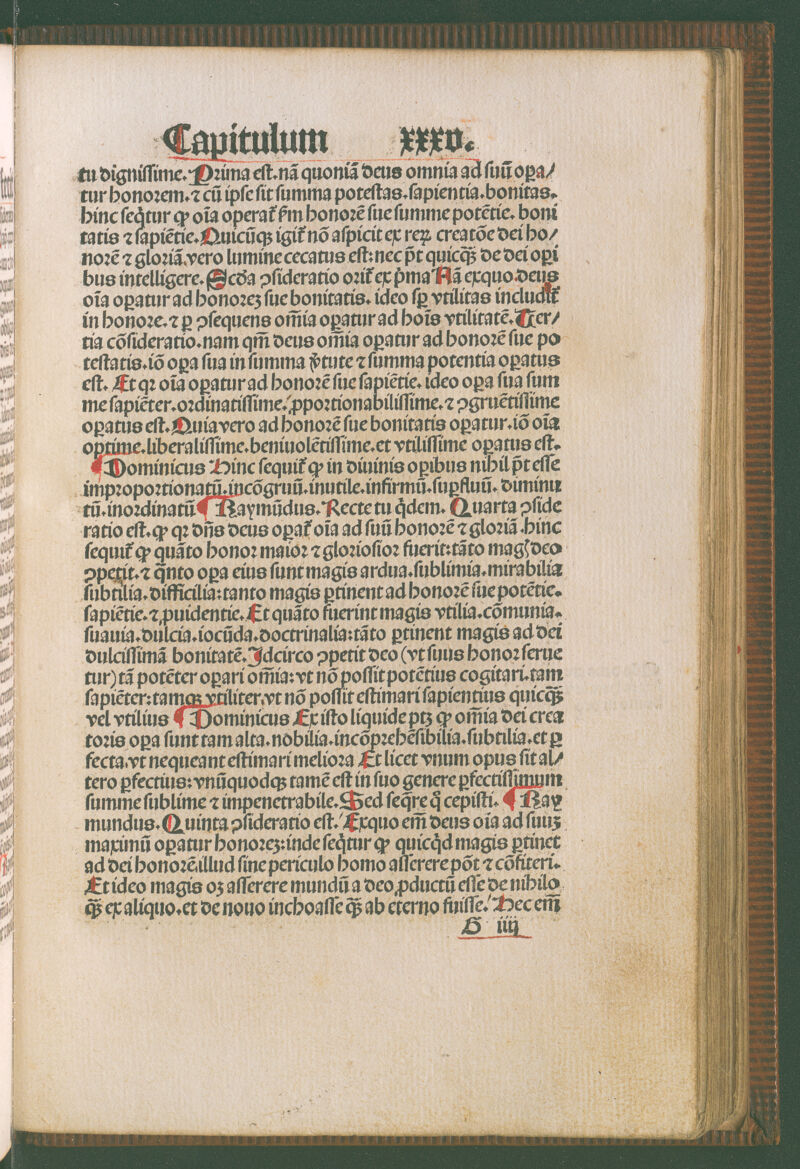 Capitulum xxxv.
tu digniſſime. Prima eſt. nā quoniā deus omnia ad ſuū oꝑa/
tur honorem. ⁊ cū ipſe ſit ſumma poteſtas. ſapientia. bonitas.
hinc ſeq̄tur ꝙ oīa operat᷑ ẜm honorē ſue ſumme potētie. boni
tatis ⁊ ſapiētie. Quicūqꝫ igit᷑ nō aſpicit ex reꝝ creatōe dei ho/
norē ⁊ gloriā. vero lumine cecatus eſt: nec p̄t quicq̄ꝫ de dei oꝑi
bus intelligere. Scd̄a ꝯſideratio orit᷑ ex p̄ma Nā exquo deus
oīa oꝑatur ad honoreꝫ ſue bonitatis. ideo ſꝑ vtilitas includit᷑
in honore. ⁊ ꝑ ꝯſequens om̄ia oꝑatur ad hoīs vtilitatē. Ter/
tia cōſideratio. nam qm̄ deus om̄ia oꝑatur ad honorē ſue po
teſtatis. iō oꝑa ſua in ſumma v̄tute ⁊ ſumma potentia oꝑatus
eſt. Et qꝛ oīa oꝑatur ad honorē ſue ſapiētie. ideo oꝑa ſua ſum
me ſapiēter. ordinatiſſime. ꝓportionabiliſſime. ⁊ ꝯgruētiſſime
oꝑatus eſt. Quia vero ad honorē ſue bonitatis oꝑatur. iō oīa
optime. liberaliſſime. beniuolētiſſime. et vtiliſſime oꝑatus eſt.
¶ Dominicus Hinc ſequit᷑ ꝙ in diuinis oꝑibus nihil p̄t eſſe
improportionatū. incōgruū. inutile. infirmū. ſuꝑfluū. diminu
tū. inordinatū ¶ Raymūdus. Recte tu q̄dem. Quarta ꝯſide
ratio eſt. ꝙ qꝛ dn̄s deus oꝑat᷑ oīa ad ſuū honorē ⁊ gloriā. hinc
ſequit᷑ ꝙ quāto honor maior ⁊ glorioſior fuerit: tāto magꝭ deo
ꝯpetit. ⁊ q̄nto oꝑa eius ſunt magis ardua. ſublimia. mirabilia
ſubtilia. difficilia: tanto magis ꝑtinent ad honorē ſue potētie.
ſapiētie. ⁊ ꝓuidentie. Et quāto fuerint magis vtilia. cōmunia.
ſuauia. dulcia. iocūda. doctrinalia: tāto ꝑtinent magis ad dei
dulciſſimā bonitatē. Idcirco ꝯpetit deo (vt ſuus honor ſerue
tur) tā potēter oꝑari om̄ia: vt nō poſſit potētius cogitari. tam
ſapiēter: tamqꝫ vtiliter. vt nō poſſit eſtimari ſapientius quicq̄ꝫ
vel vtilius ¶ Dominicus Ex iſto liquide ptꝫ ꝙ om̄ia dei crea
toris oꝑa ſunt tam alta. nobilia. incōprehēſibilia. ſubtilia. et ꝑ
fecta. vt nequeant eſtimari meliora Et licet vnum opus ſit al/
tero ꝑfectius: vnūquodqꝫ tamē eſt in ſuo genere ꝑfectiſſimum
ſumme ſublime ⁊ impenetrabile. Sed ſeq̄re q̄ cepiſti. ¶ Ray
mundus. Quinta ꝯſideratio eſt. Exquo em̄ deus oīa ad ſuuꝫ
maximū oꝑatur honoreꝫ: inde ſeq̄tur ꝙ quicq̄d magis ꝑtinet
ad dei honorē. illud ſine periculo homo aſſerere pōt ⁊ cōfiteri.
Et ideo magis oꝫ aſſerere mundū a deo ꝓductū eſſe de nihilo
q̄ꝫ ex aliquo. et de nouo inchoaſſe q̄ꝫ ab eterno fuiſſe. Hec em̄